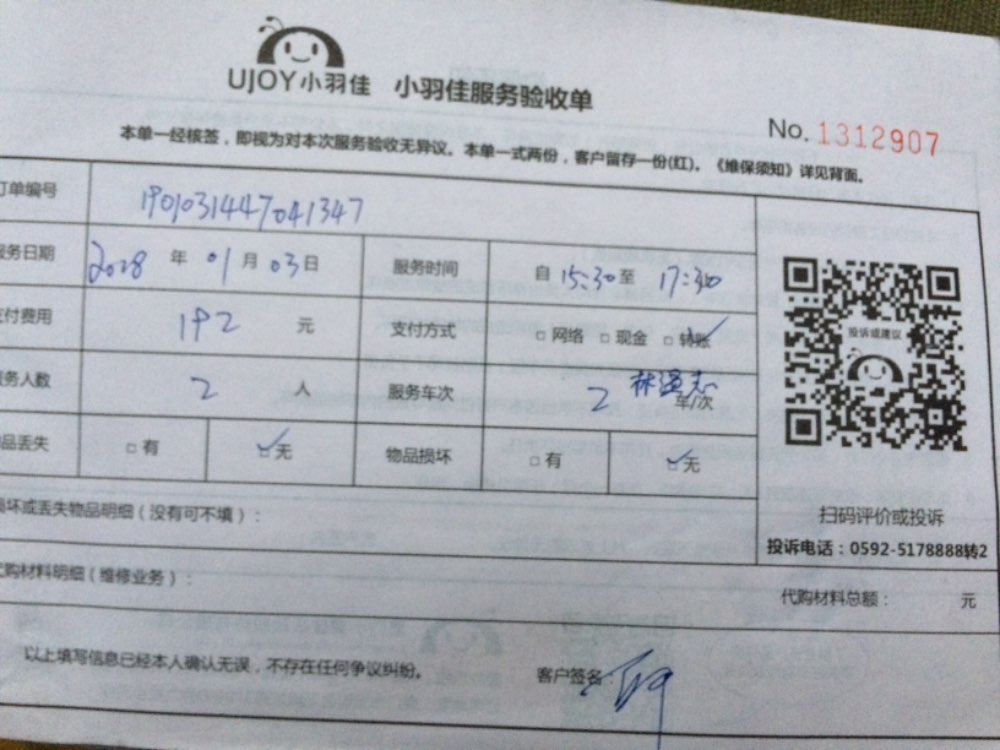 UJOY小羽佳 小羽佳服务验收单
No. 1312907
本单一经核签，即视为对本次服务验收无异议。本单一式两份，客户留存一份(红)。《维保须知》详见背面。
订单编号 1901031447041347
服务日期 2018 年 01 月 03 日 服务时间 自 15:30 至 17:30
支付费用 192 元 支付方式 □网络 □现金 □转账
服务人数 2 人 服务车次 2 车/次 林温志
物品丢失 □有 ☑无 物品损坏 □有 ☑无
投诉或建议
扫码评价或投诉
投诉电话：0592-5178888转2
损坏或丢失物品明细（没有可不填）：
代购材料明细（维修业务）： 代购材料总额： 元
以上填写信息已经本人确认无误，不存在任何争议纠纷。 客户签名：